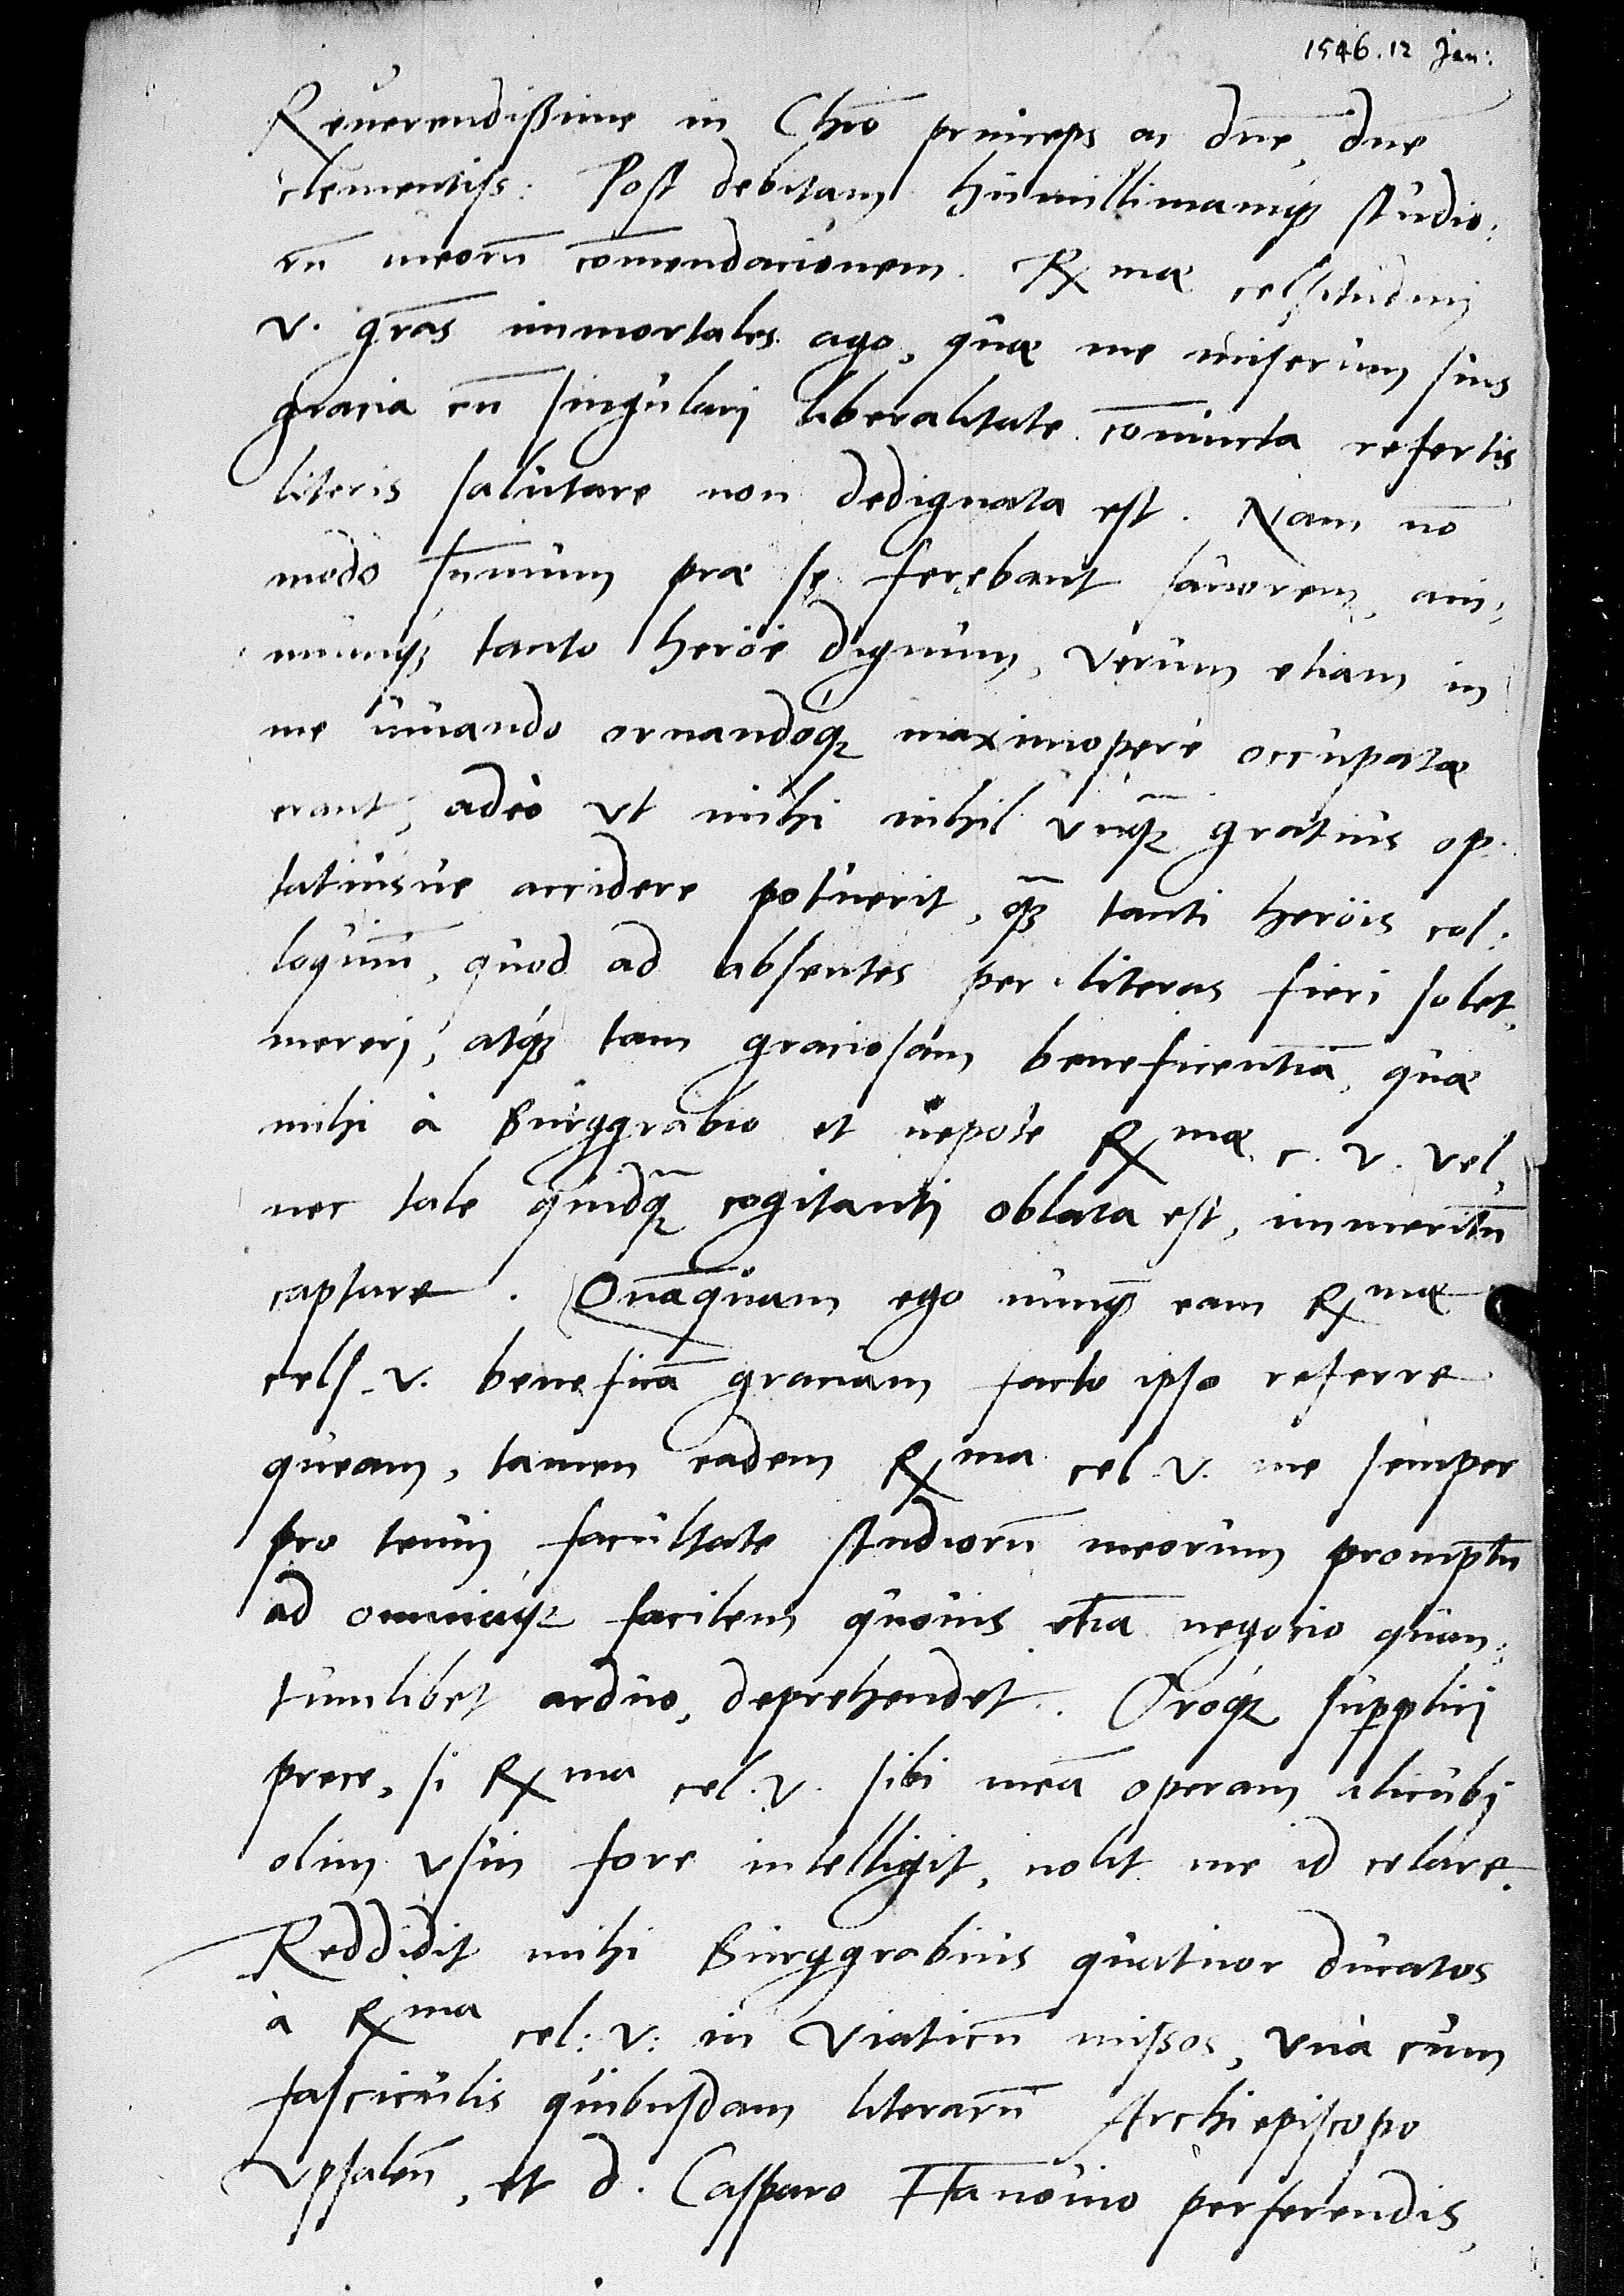 1546. 12 Jan:
Reuerendissime in Chro princeps ac dne, dne
clementiss: Post debitam humillimamque studio:
ru meoru comendacionem. Rmae celsitudini
v. gras immortales ago, quae me miserum suis
gracia cu singulari liberalitate coniuncta refertis
literis salutare non dedignata est. Nam no
modo sumum prae se ferebant fauorem, ani:
mumque tanto heroë dignum, verum etiam in
me iuuando ornandoque maximopere occupatae
erant, adeò vt mihi nihil vnquam gratius op:
tatiusue accidere potuerit, quam tanti heroïs col:
loquium, quod ad absentes per literas fieri solet,
mereri, atque tam graciosam beneficentia, quae
mihi à Burggrabio et nepote Rmae c. v. vel
nec tale quidquam cogitanti oblata est, immeritu
captare. Quaquam ego nunquam eam Rmae
cels. v. benefica graciam facto ipso referre
queam, tamen eadem Rma cel. v. me semper
pro tenui facultate studioru meorum promptu
ad omniaque facilem quouis etia negocio quan:
tumlibet arduo, deprehendet. Oroque supplici
prece, si Rma cel. v. sibi mea operam alicubi
olim vsui fore intelligit, nolit me id celare.
Reddidit mihi Burggrabius quatuor ducatos
à Rma cel: v: in viaticu missos, vnà cum
fasciculis quibusdam literaru Archiepiscopo
Vpsalen, et d. Casparo Hanouio perferendis,